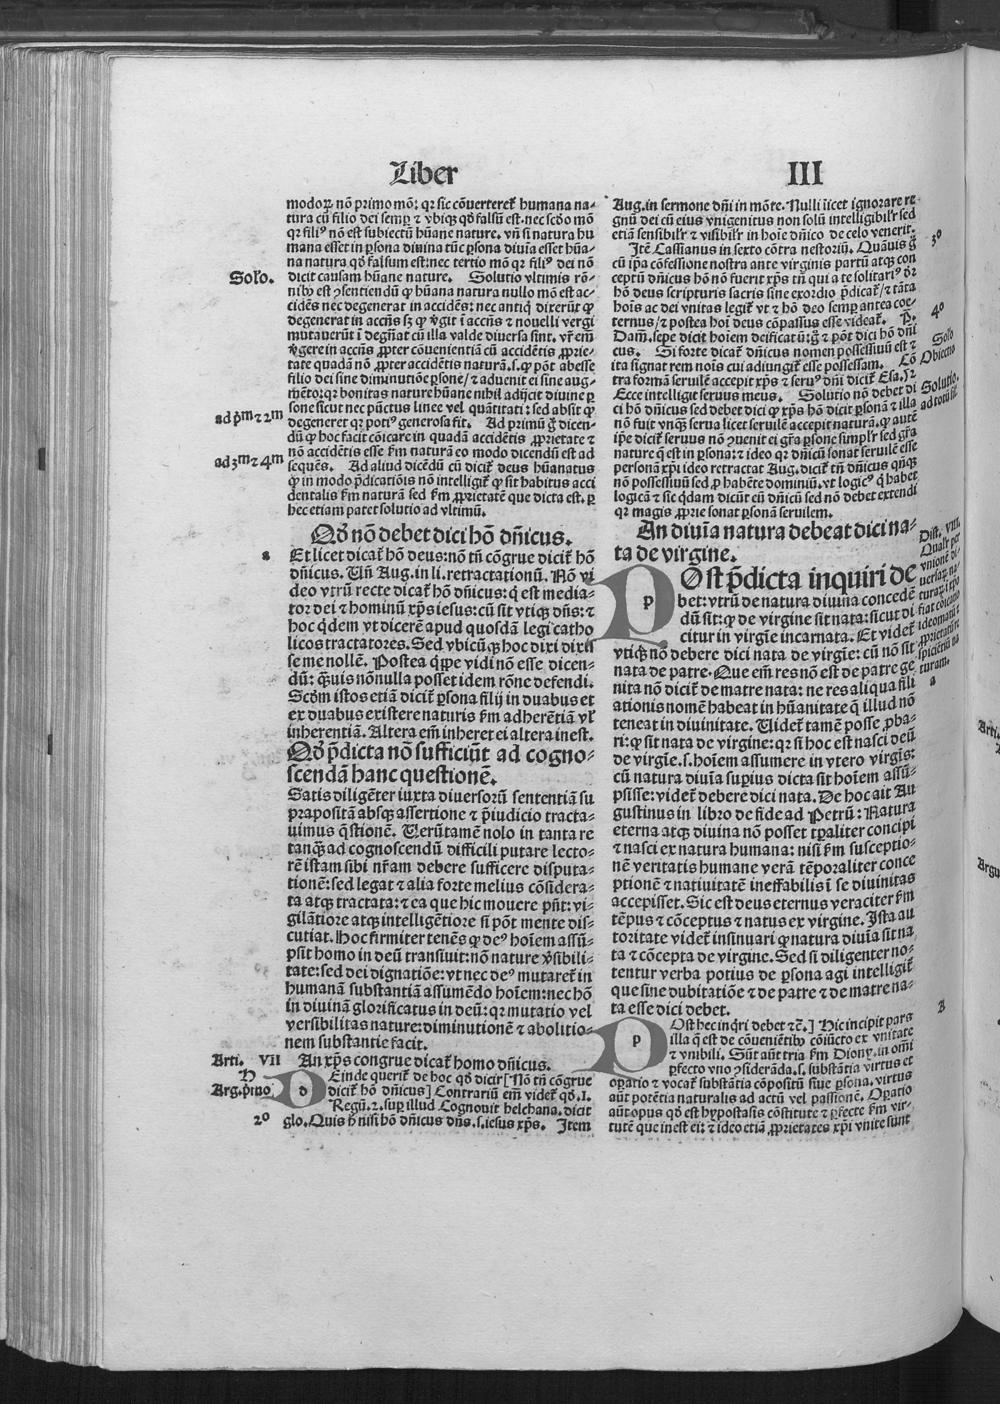 Liber III
modoꝝ nõ primo mõ: qꝛ sic cõuerteret̃ humana na-
tura cũ filio dei semꝑ ⁊ vbiqꝫ qð falsũ est. nec scðo mõ
qꝛ filiꝰ nõ est subiectũ hũane nature. vñ si natura hu
mana esset in ꝑsona diuina tũc ꝑsona diuĩa esset hũa-
na natura qð falsum est: nec tertio mõ qꝛ filiꝰ dei nõ
Solo.
dicit causam hũane nature. Solutio vltimis rõ-
nibꝰ est ꝯsentiendũ ꝙ hũana natura nullo mõ est ac-
cidẽs nec degenerat in accidẽs: nec antiq̃ dixerũt ꝙ
degenerat in accñs sꝫ ꝙ v̓git ĩ accñs ⁊ nouelli vergi
mutauerũt ĩ degñat cũ illa valde diuersa sint. vr̃ em̃
v̓gere in accñs ꝓpter cõuenientiã cũ accidẽtis ꝓprie-
tate quadã nõ ꝓpter accidẽtis naturã. s. ꝙ põt abesse
filio dei sine diminutiõe ꝑsone/ ⁊ aduenit ei sine aug-
mẽto: qꝛ bonitas nature hũane nihil adijcit diuine ꝑ
sone sicut nec pũctus linee vel quãtitati: sed absit ꝙ
ad pm̃ ⁊ 2m
degeneret qꝛ potiꝰ generosa fit. Ad primũ g̃ dicen-
dũ ꝙ hoc facit cõicare in quadã accidẽtis ꝓprietate ⁊
nõ accidẽtis esse ẜm naturã eo modo dicendũ est ad
ad 3m ⁊ 4m
sequẽs. Ad aliud dicẽdũ cũ dicit̃ deus hũanatus
ꝙ in modo p̃dicatiõis nõ intelligit̃ ꝙ sit habitus acci
dentalis ẜm naturã sed ẜm ꝓprietatẽ que dicta est. ꝑ
hec etiam patet solutio ad vltimũ.
Qð nõ debet dici hõ dñicus.
a
Et licet dicat̃ hõ deus: nõ tñ cõgrue dicit̃ hõ
dñicus. Vñ Aug. in li. retractationũ. Nõ vi
deo vtrũ recte dicat̃ hõ dñicus: q̃ est media-
tor dei ⁊ hominũ xp̃s iesus: cũ sit vtiqꝫ dñs: ⁊
hoc q̃dem vt dicerẽ apud quosdã legi catho
licos tractatores. Sed vbicũqꝫ hoc dixi dixis
se me nollẽ. Postea q̃ppe vidi nõ esse dicen-
dũ: q̃uis nõnulla posset idem rõne defendi.
Scðm istos etiã dicit̃ ꝑsona filij in duabus et
ex duabus existere naturis ẜm adherẽtiã vl̃
inherentiã. Altera em̃ inheret ei altera inest.
Qð p̃dicta nõ sufficiũt ad cogno-
scendã hanc questionẽ.
Satis diligẽter iuxta diuersorũ sententiã su
prapositã absqꝫ assertione ⁊ p̃iudicio tracta-
uimus q̃stionẽ. Verũtamẽ nolo in tanta re
tanq̃ꝫ ad cognoscendũ difficili putare lecto-
rẽ istam sibi nr̃am debere sufficere disputa-
tionẽ: sed legat ⁊ alia forte melius cõsidera-
ta atqꝫ tractata: ⁊ ea que hic mouere pñt: vi-
gilãtiore atqꝫ intelligẽtiore si põt mente dis-
cutiat. Hoc firmiter tenẽs ꝙ deꝰ hoĩem assũ-
psit homo in deũ transiuit: nõ nature v̓sibili-
tate: sed dei dignatiõe: vt nec deꝰ mutaret̃ in
humanã substantiã assumẽdo hoĩem: nec hõ
in diuinã glorificatus in deũ: qꝛ mutatio vel
versibilitas nature: diminutionẽ ⁊ abolitio-
nem substantie facit.
Arti. VII An xp̃s congrue dicat̃ homo dñicus.
H
Deinde querit̃ de hoc qð dicit [Nõ tñ cõgrue
Arg. p̃mo
dicit̃ hõ dñicus] Contrariũ em̃ videt̃ qð. 1.
Regũ. 2. suꝑ illud Cognouit helchana. dicit
2º
glo. Quis h̃ nisi hõ dñicus dñs. s. iesus xp̃s. Item
Aug. in sermone dñi in mõte. Nulli licet ignorare re
gnũ dei cũ eius vnigenitus non solũ intelligibilr̃ sed
etiã sensibilr̃ ⁊ visibilr̃ in hoĩe dñico de celo venerit.
3º
Itẽ Cassianus in sexto cõtra nestoriũ. Quãuis g̃
cũ ip̃a cõfessione nostra ante virginis partũ atqꝫ con
ceptũ dñicus hõ nõ fuerit xp̃s tñ qui a te solitariꝰ dr̃
hõ deus scripturis sacris sine exordio p̃dicat̃/ ⁊ tãta
4º
hoĩs ac dei vnitas legit̃ vt ⁊ hõ deo semꝑ antea coe-
ternus/ ⁊ postea hoĩ deus cõpassus esse videat̃. P.
Dam̃. sepe dicit hoĩem deificatũ: g̃ ⁊ põt dici hõ dñi
Solo
cus. Si forte dicat̃ dñicus nomen possessiuũ est ⁊
Obiectio
ita signat rem nõis cui adiungit̃ esse possessam. Cõ
tra formã seruilẽ accepit xp̃s ⁊ seruꝰ dñi dicit̃ Esa. 52
Solutio.
Ecce intelliget seruus meus. Solutio nõ debet di
ad totũ sil̃.
ci hõ dñicus sed debet dici ꝙ xp̃s hõ dicit ꝑsonã ⁊ illa
nõ fuit vnq̃ꝫ serua licet seruilẽ accepit naturã. ꝙ autẽ
ip̃e dicit̃ seruus nõ ꝯuenit ei gr̃a ꝑsone simplr̃ sed gr̃a
nature q̃ est in ꝑsona: ⁊ ideo qꝛ dñicũ sonat seruilẽ esse
personã xp̃i ideo retractat Aug. dicit̃ tñ dñicus qñqꝫ
nõ possessiuũ sed ꝑ habẽte dominiũ. vt logicꝰ q̃ habet
logicã ⁊ sic q̃dam dicũt eũ dñicũ sed nõ debet extendi
qꝛ magis ꝓprie sonat ꝑsonã seruilem.
An diuĩa natura debeat dici na-
ta de virgine.
Dist. VIII.
Qualr̃ per
vnionẽ di-
uersaꝝ na-
turaꝝ
Post p̃dicta inquiri de
bet: vtrũ de natura diuina concedẽ
dũ sit: ꝙ de virgine sit nata: sicut di
citur in virgĩe incarnata. Et videt̃
vtiqꝫ nõ debere dici nata de virgĩe: cũ nõ sit
nata de patre. Que em̃ res nõ est de patre ge
a
nita nõ dicit̃ de matre nata: ne res aliqua fili
ationis nomẽ habeat in hũanitate q̃ illud nõ
teneat in diuinitate. Videt̃ tamẽ posse ꝓba-
ri: ꝙ sit nata de virgine: qꝛ si hoc est nasci deũ
de virgĩe. s. hoĩem assumere in vtero virgĩs:
cũ natura diuĩa suꝑius dicta sit hoĩem assũ-
psisse: videt̃ debere dici nata. De hoc ait Au
gustinus in libro de fide ad Petrũ: Natura
eterna atqꝫ diuina nõ posset tp̃aliter concipi
⁊ nasci ex natura humana: nisi ẜm susceptio-
nẽ veritatis humane verã tẽporaliter conce
ptionẽ ⁊ natiuitatẽ ineffabilis ĩ se diuinitas
accepisset. Sic est deus eternus veraciter ẜm
tẽpus ⁊ cõceptus ⁊ natus ex virgine. Ista au
toritate videt̃ insinuari ꝙ natura diuĩa sit na
ta ⁊ cõcepta de virgine. Sed si diligenter no-
tentur verba potius de ꝑsona agi intelligit̃
que sine dubitatiõe ⁊ de patre ⁊ de matre na-
ta esse dici debet.
B
Post hec inq̃ri debet ⁊c̃.] Hic incipit pars
illa q̃ est de cõuenientibꝰ cõiũcto ex vnitate
⁊ vnibili. Sũt aũt tria ẜm Diony. in om̃i
ꝑfecto vno ꝯsiderãda. s. substãtia virtus et
oꝑatio ⁊ vocat̃ substãtia cõpositũ siue ꝑsona. virtus
aũt potẽtia naturalis ad actũ vel passionẽ. Oꝑatio
aũt opus qð est hypostasis cõstitute ⁊ ꝑfecte ẜm vir-
tutẽ que inest ei: ⁊ ideo etiã ꝓprietates xp̃i vnite sunt